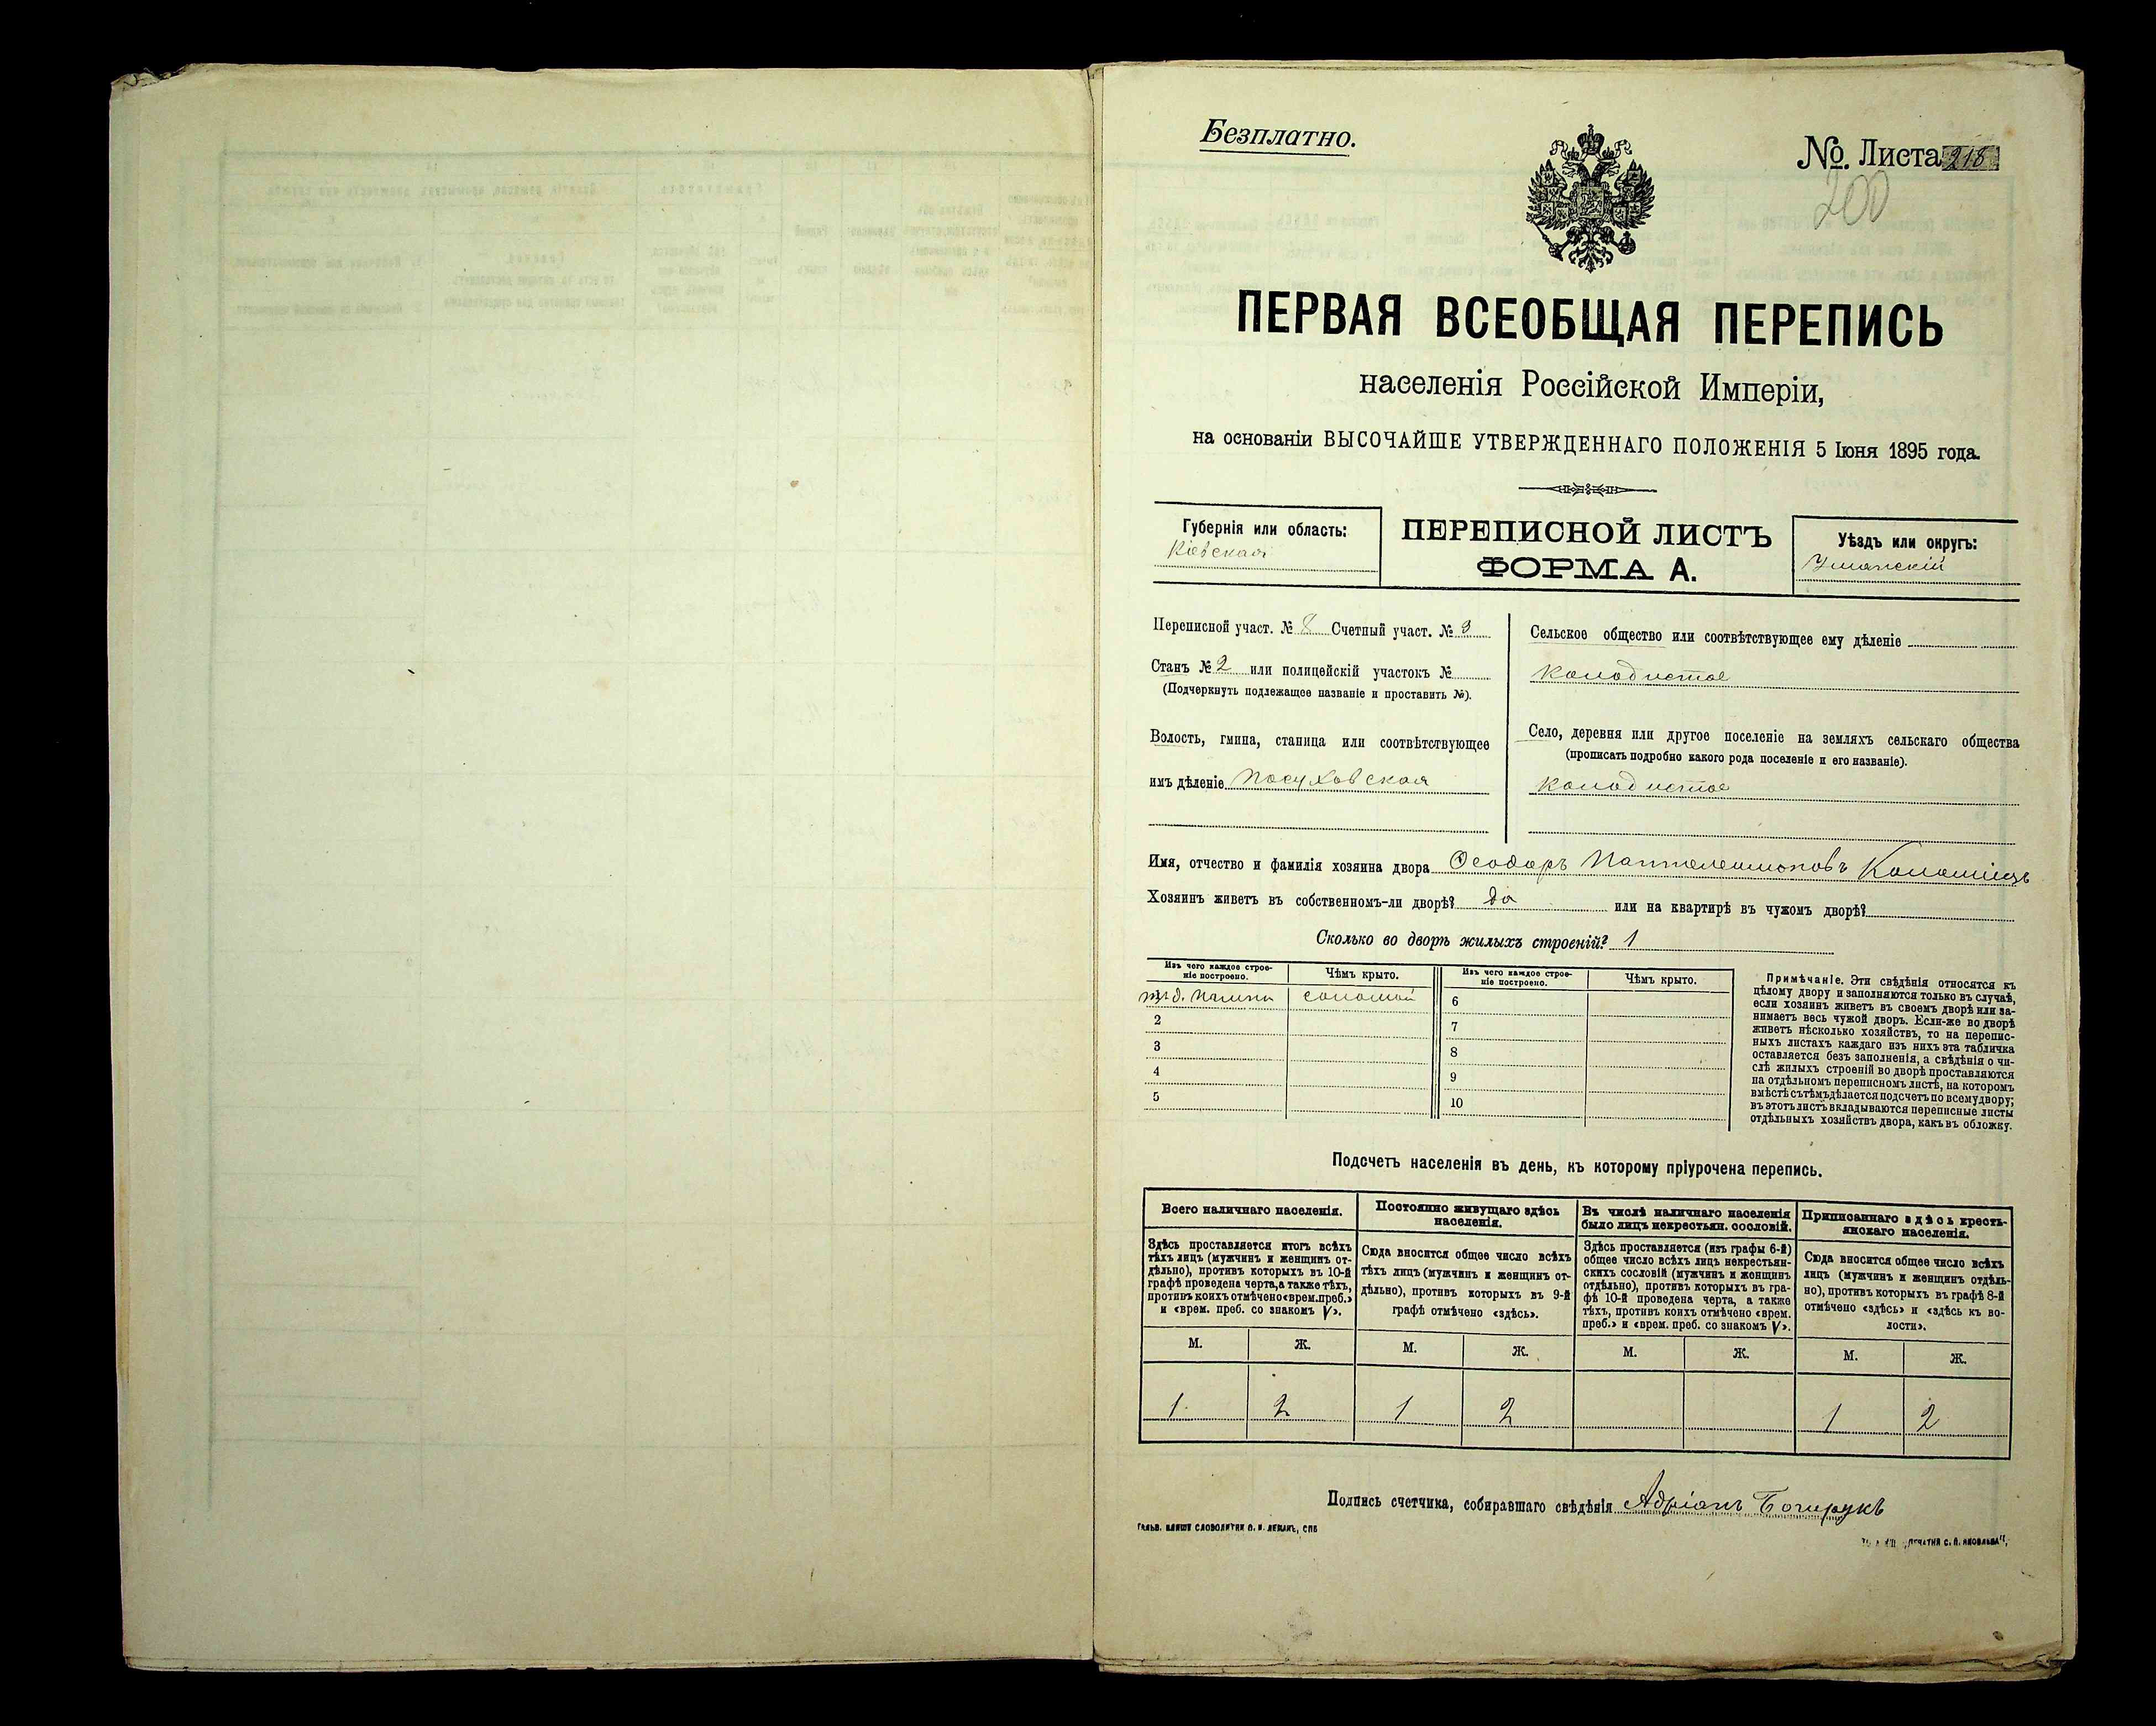 Безплатно.
№ Листа 218
200
ПЕРВАЯ ВСЕОБЩАЯ ПЕРЕПИСЬ
населенія Россійской Имперіи,
на основаніи ВЫСОЧАЙШЕ УТВЕРЖДЕННАГО ПОЛОЖЕНІЯ 5 Іюня 1895 года.
Губернія или область:
Кіевская
ПЕРЕПИСНОЙ ЛИСТЪ
ФОРМА А.
Уѣздъ или округъ:
Уманскій
Переписной участ. № 8 Счетный участ. № 9
Станъ № 2 или полицейскій участокъ №
(Подчеркнуть подлежащее названіе и проставить №).
Волость, гмина, станица или соотвѣтствующее
имъ дѣленіе Посуховская
Сельское общество или соотвѣтствующее ему дѣленіе
Колодистое
Село, деревня или другое поселеніе на земляхъ сельскаго общества
(прописать подробно какого рода поселеніе и его названіе).
Колодистое
Имя, отчество и фамилія хозяина двора Ѳеодоръ Пантелеимоновъ Коломіецъ
Хозяинъ живетъ въ собственномъ-ли дворѣ? да или на квартирѣ въ чужомъ дворѣ?
Сколько во дворѣ жилыхъ строеній? 1
Изъ чего каждое строе-
ніе построено.
Чѣмъ крыто.
Изъ чего каждое строе-
ніе построено.
Чѣмъ крыто.
соломой
6
2
7
3
8
4
9
5
10
Примѣчаніе. Эти свѣдѣнія относятся къ
цѣлому двору и заполняются только въ случаѣ,
если хозяинъ живетъ въ своемъ дворѣ или за-
нимаетъ весь чужой дворъ. Если-же во дворѣ
живетъ нѣсколько хозяйствъ, то на перепис-
ныхъ листахъ каждаго изъ нихъ эта табличка
оставляется безъ заполненія, а свѣдѣнія о чи-
слѣ жилыхъ строеній во дворѣ проставляются
на отдѣльномъ переписномъ листѣ, на которомъ
вмѣстѣ съ тѣмъ дѣлается подсчетъ по всему двору;
въ этотъ листъ вкладываются переписные листы
отдѣльныхъ хозяйствъ двора, какъ въ обложку.
Подсчетъ населенія въ день, къ которому пріурочена перепись.
Всего наличнаго населенія.
Здѣсь проставляется итогъ всѣхъ
тѣхъ лицъ (мужчинъ и женщинъ от-
дѣльно), противъ которыхъ въ 10-й
графѣ проведена черта, а также тѣхъ,
противъ коихъ отмѣчено «врем. преб.»
и «врем. преб. со знакомъ V».
Постоянно живущаго здѣсь
населенія.
Сюда вносится общее число всѣхъ
тѣхъ лицъ (мужчинъ и женщинъ от-
дѣльно), противъ которыхъ въ 9-й
графѣ отмѣчено «здѣсь».
Въ числѣ наличнаго населенія
было лицъ некрестьян. сословій.
Здѣсь проставляется (изъ графы 6-й)
общее число всѣхъ лицъ некрестьян-
скихъ сословій (мужчинъ и женщинъ
отдѣльно), противъ которыхъ въ гра-
фѣ 10-й проведена черта, а также
тѣхъ, противъ коихъ отмѣчено «врем.
преб.» и «врем. преб. со знакомъ V».
Приписаннаго здѣсь кресть-
янскаго населенія.
Сюда вносится общее число всѣхъ
лицъ (мужчинъ и женщинъ отдѣль-
но), противъ которыхъ въ графѣ 8-й
отмѣчено «здѣсь» и «здѣсь къ во-
лости».
М. Ж. М. Ж. М. Ж. М. Ж.
1 2 1 2 1 2
Подпись счетчика, собиравшаго свѣдѣнія Адріанъ